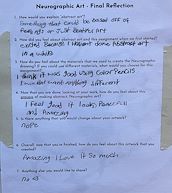 Neurographic Art - Final Reflection
1. How would you explain "abstract art"?
Something that could be based off of
feelings or Just abstract art
2. How did you feel about abstract art and this assignment when we first started?
excited Because I haven't done Abstract art
in a while
3. How do you feel about the materials that we used to create the Neurographic
drawing? If you could use different materials, what would you choose for this
assignment?
I think it was good Using color Pencils
I would not want anything different
4. Now that you are done looking at your work, how do you feel about the
process of making abstract Neurographic art?
I Feel good it looks Peaceful
and Amazing
5. Is there anything that you would change about your artwork?
nope
6. Overall, now that you're finished, how do you feel about this artwork that you
created?
Amazing I Love it So much
7. Anything else you would like to share?
no <3